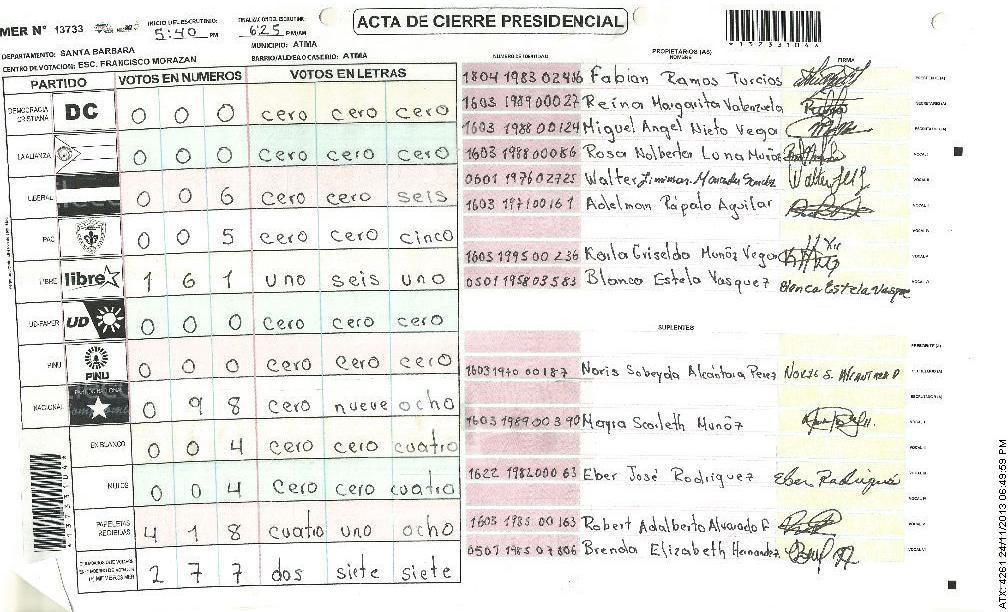 ACTA DE CIERRE PRESIDENCIAL
MER N° 13733
INICIO DEL ESCRUTINIO: 5:40 PM
FINALIZACION DEL ESCRUTINIO: 6:25 PM/AM
DEPARTAMENTO: SANTA BARBARA
MUNICIPIO: ATIMA
CENTRO DE VOTACION: ESC. FRANCISCO MORAZAN
BARRIO/ALDEA O CASERIO: ATIMA
PARTIDO VOTOS EN NUMEROS VOTOS EN LETRAS
DEMOCRACIA CRISTIANA DC 0 0 0 cero cero cero
LA ALIANZA 0 0 0 cero cero cero
LIBERAL 0 0 6 cero cero seis
PAC 0 0 5 cero cero cinco
LIBRE libre 1 6 1 uno seis uno
UD-FAPER UD 0 0 0 cero cero cero
PINU PINU 0 0 0 cero cero cero
NACIONAL 0 9 8 cero nueve ocho
EN BLANCO 0 0 4 cero cero cuatro
NULOS 0 0 4 cero cero cuatro
PAPELETAS RECIBIDAS 4 1 8 cuatro uno ocho
2 7 7 dos siete siete
*13733104*
NUMERO DE IDENTIDAD PROPIETARIOS (AS) NOMBRE FIRMA
1804 1983 02486 Fabian Ramos Turcios PRESIDENTE(A)
1603 1989 00027 Reina Margarita Valenzuela SECRETARIO(A)
1603 1988 00124 Miguel Angel Nieto Vega ESCRUTADOR(A)
1603 1988 00086 Rosa Nolberta Luna Muñoz VOCAL I
0501 1976 02725 Walter VOCAL II
1603 1971 00161 Adelman Rápalo Aguilar VOCAL III
1603 1995 00236 Karla Griselda Muñoz Vega
0501 1958 03583 Blanca Estela Vasquez Blanca Estela Vasquez
SUPLENTES
PRESIDENTE(A)
1603 1970 00187 Noris Sobeyda Alcántara Perez Noris S. Alcantara P SECRETARIO(A)
ESCRUTADOR(A)
1603 1989 00390 Mayra Scarleth Muñoz VOCAL I
1622 1982 00063 Eber José Rodriguez Eber Rodriguez
1603 1985 00163 Robert Adalberto Alvarado F.
0501 1985 07806 Brenda Elizabeth Hernandez
ATX: 4261 24/11/2013 06:49:59 PM